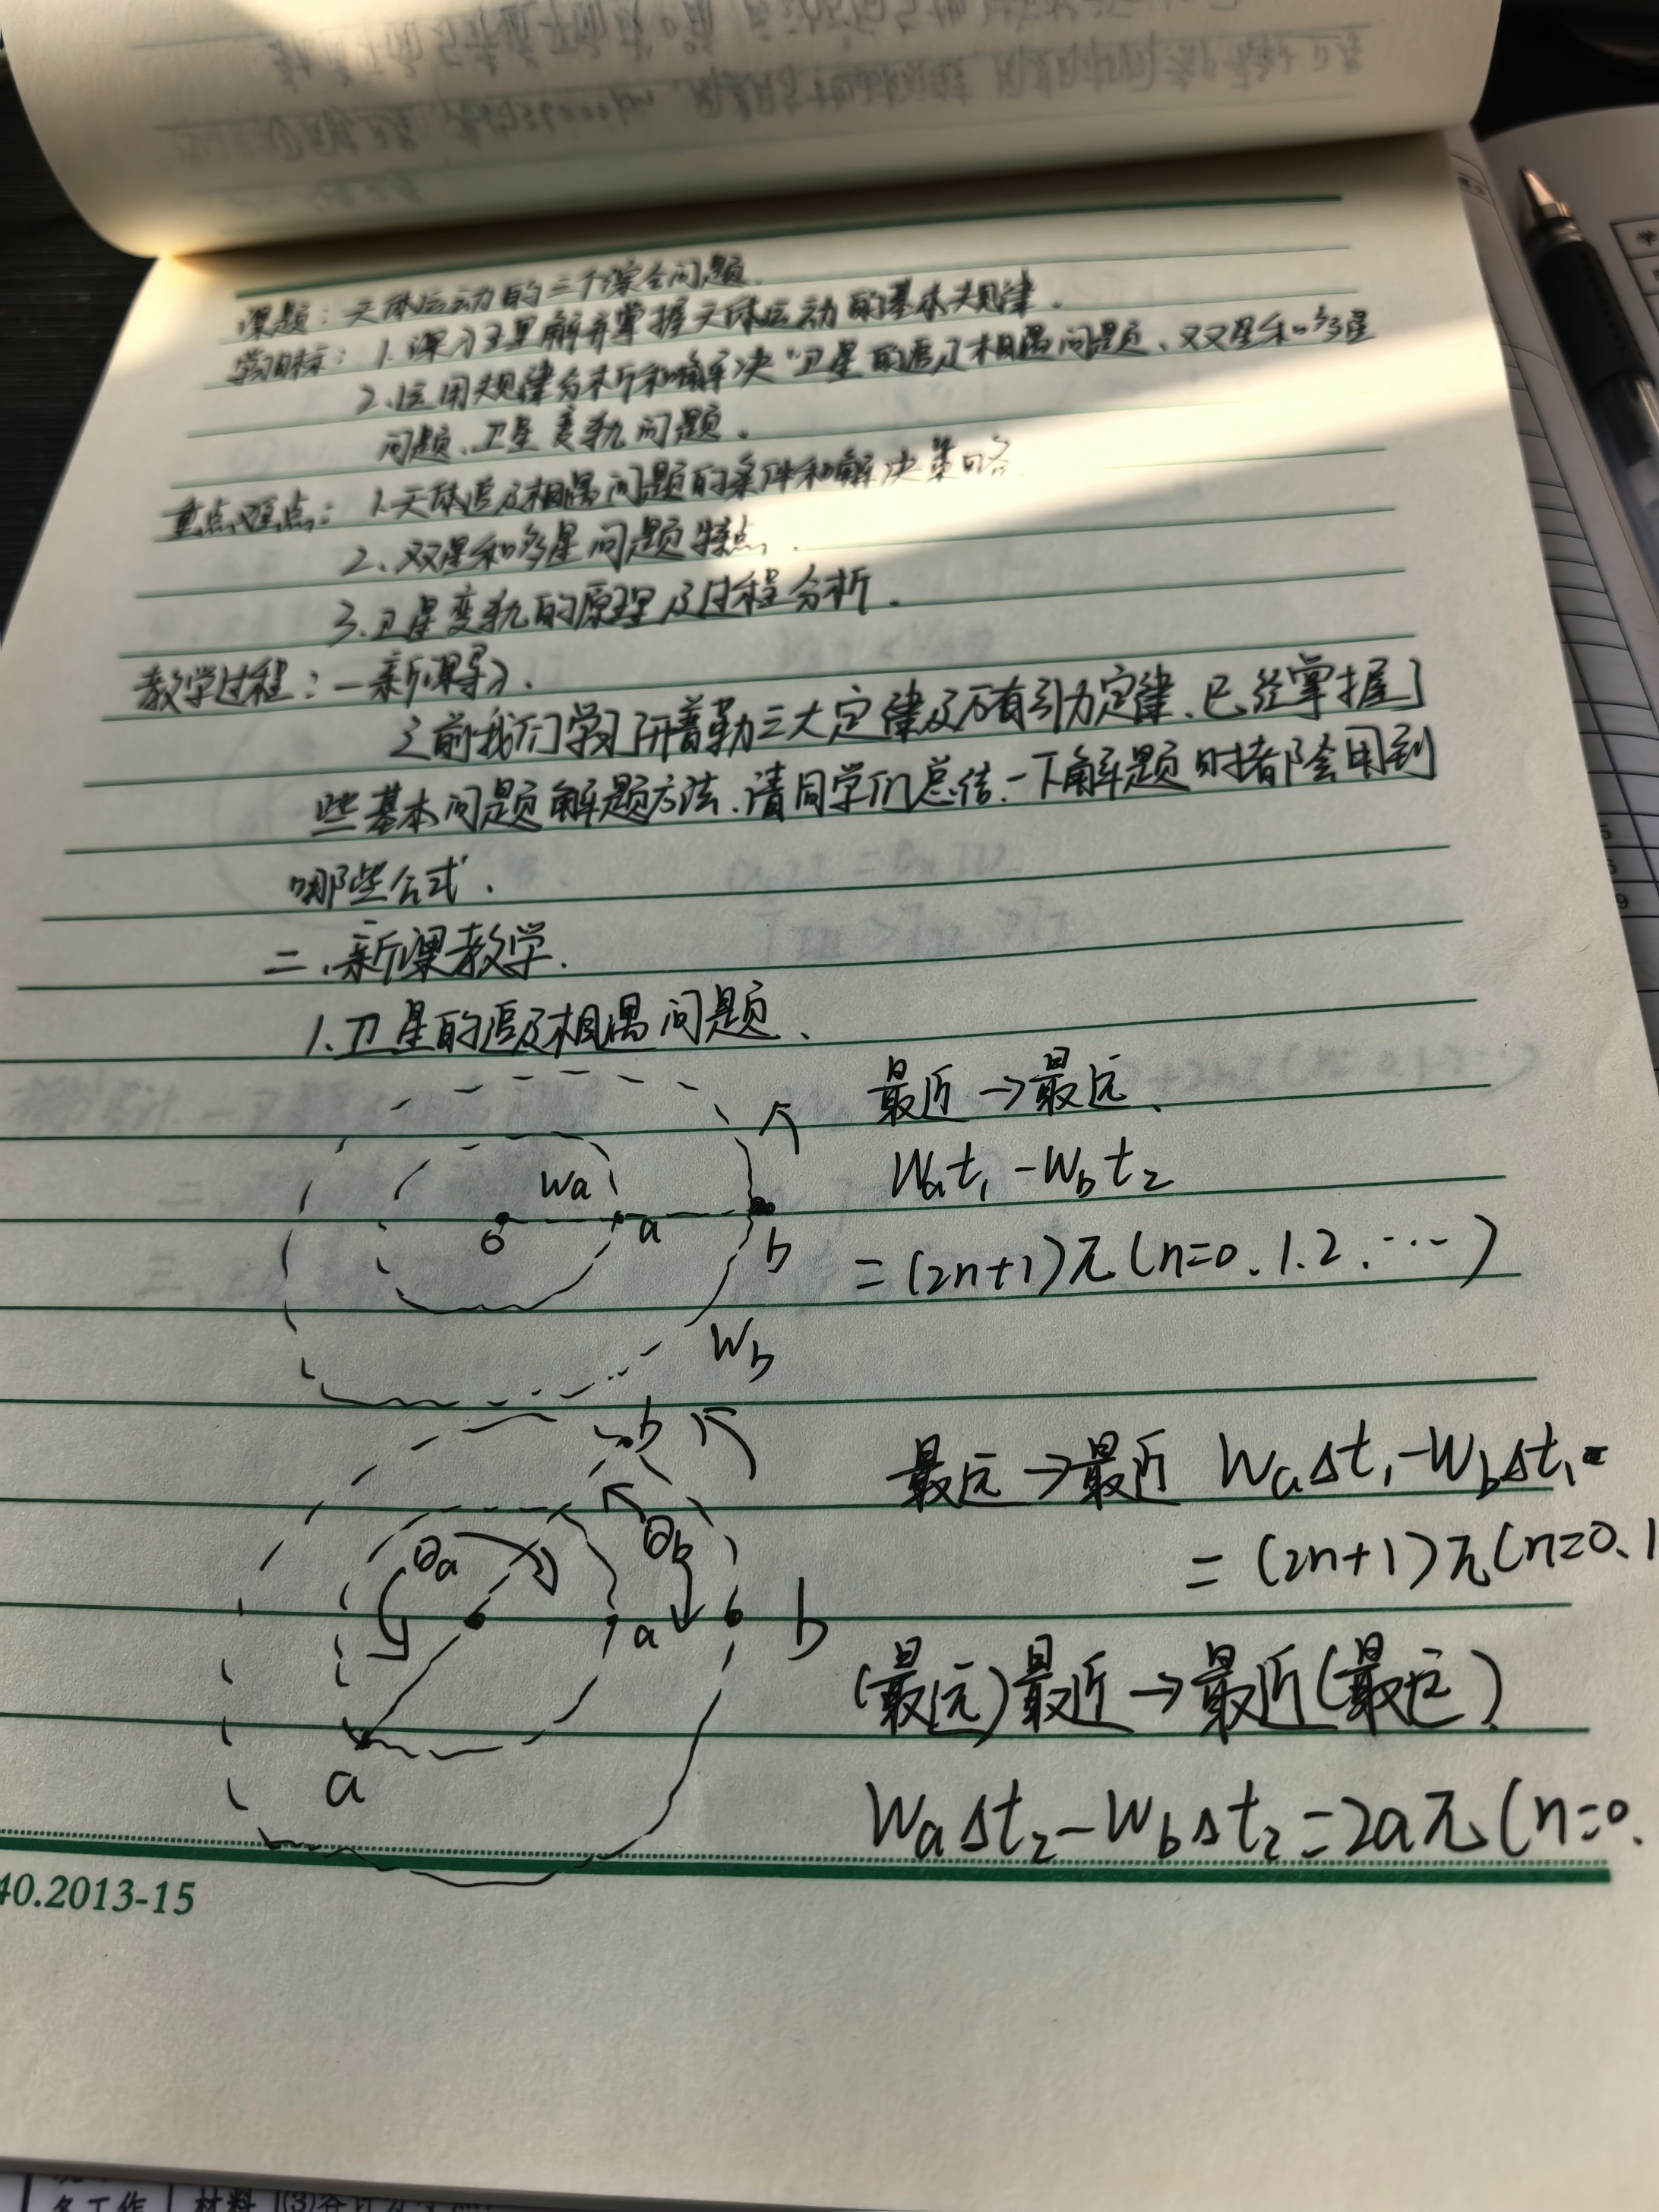 课题：天体运动的三个综合问题.
学习目标：1.深入理解并掌握天体运动的基本规律.
2.运用规律分析和解决"卫星的追及相遇问题、双星和多星
问题、卫星变轨问题.
重点难点：1.天体追及相遇问题的条件和解决策略
2.双星和多星问题特点.
3.卫星变轨的原理及过程分析.
教学过程：一新课导入.
之前我们学习了开普勒三大定律及万有引力定律、已经掌握了
些基本问题解题方法.请同学们总结一下解题时都会用到
哪些公式.
二.新课教学.
1.卫星的追及相遇问题、
最近→最远、
Wa
o
a
b
Wb
Wat₁-Wbt₂
=(2n+1)π(n=0.1.2.…)
b
θa
θb
a
b
a
最远→最近 WaΔt₁-WbΔt₁
=(2n+1)π(n=0.1
(最远)最近→最近(最远)
WaΔt₂-WbΔt₂=2aπ(n=0.
40.2013-15
材料